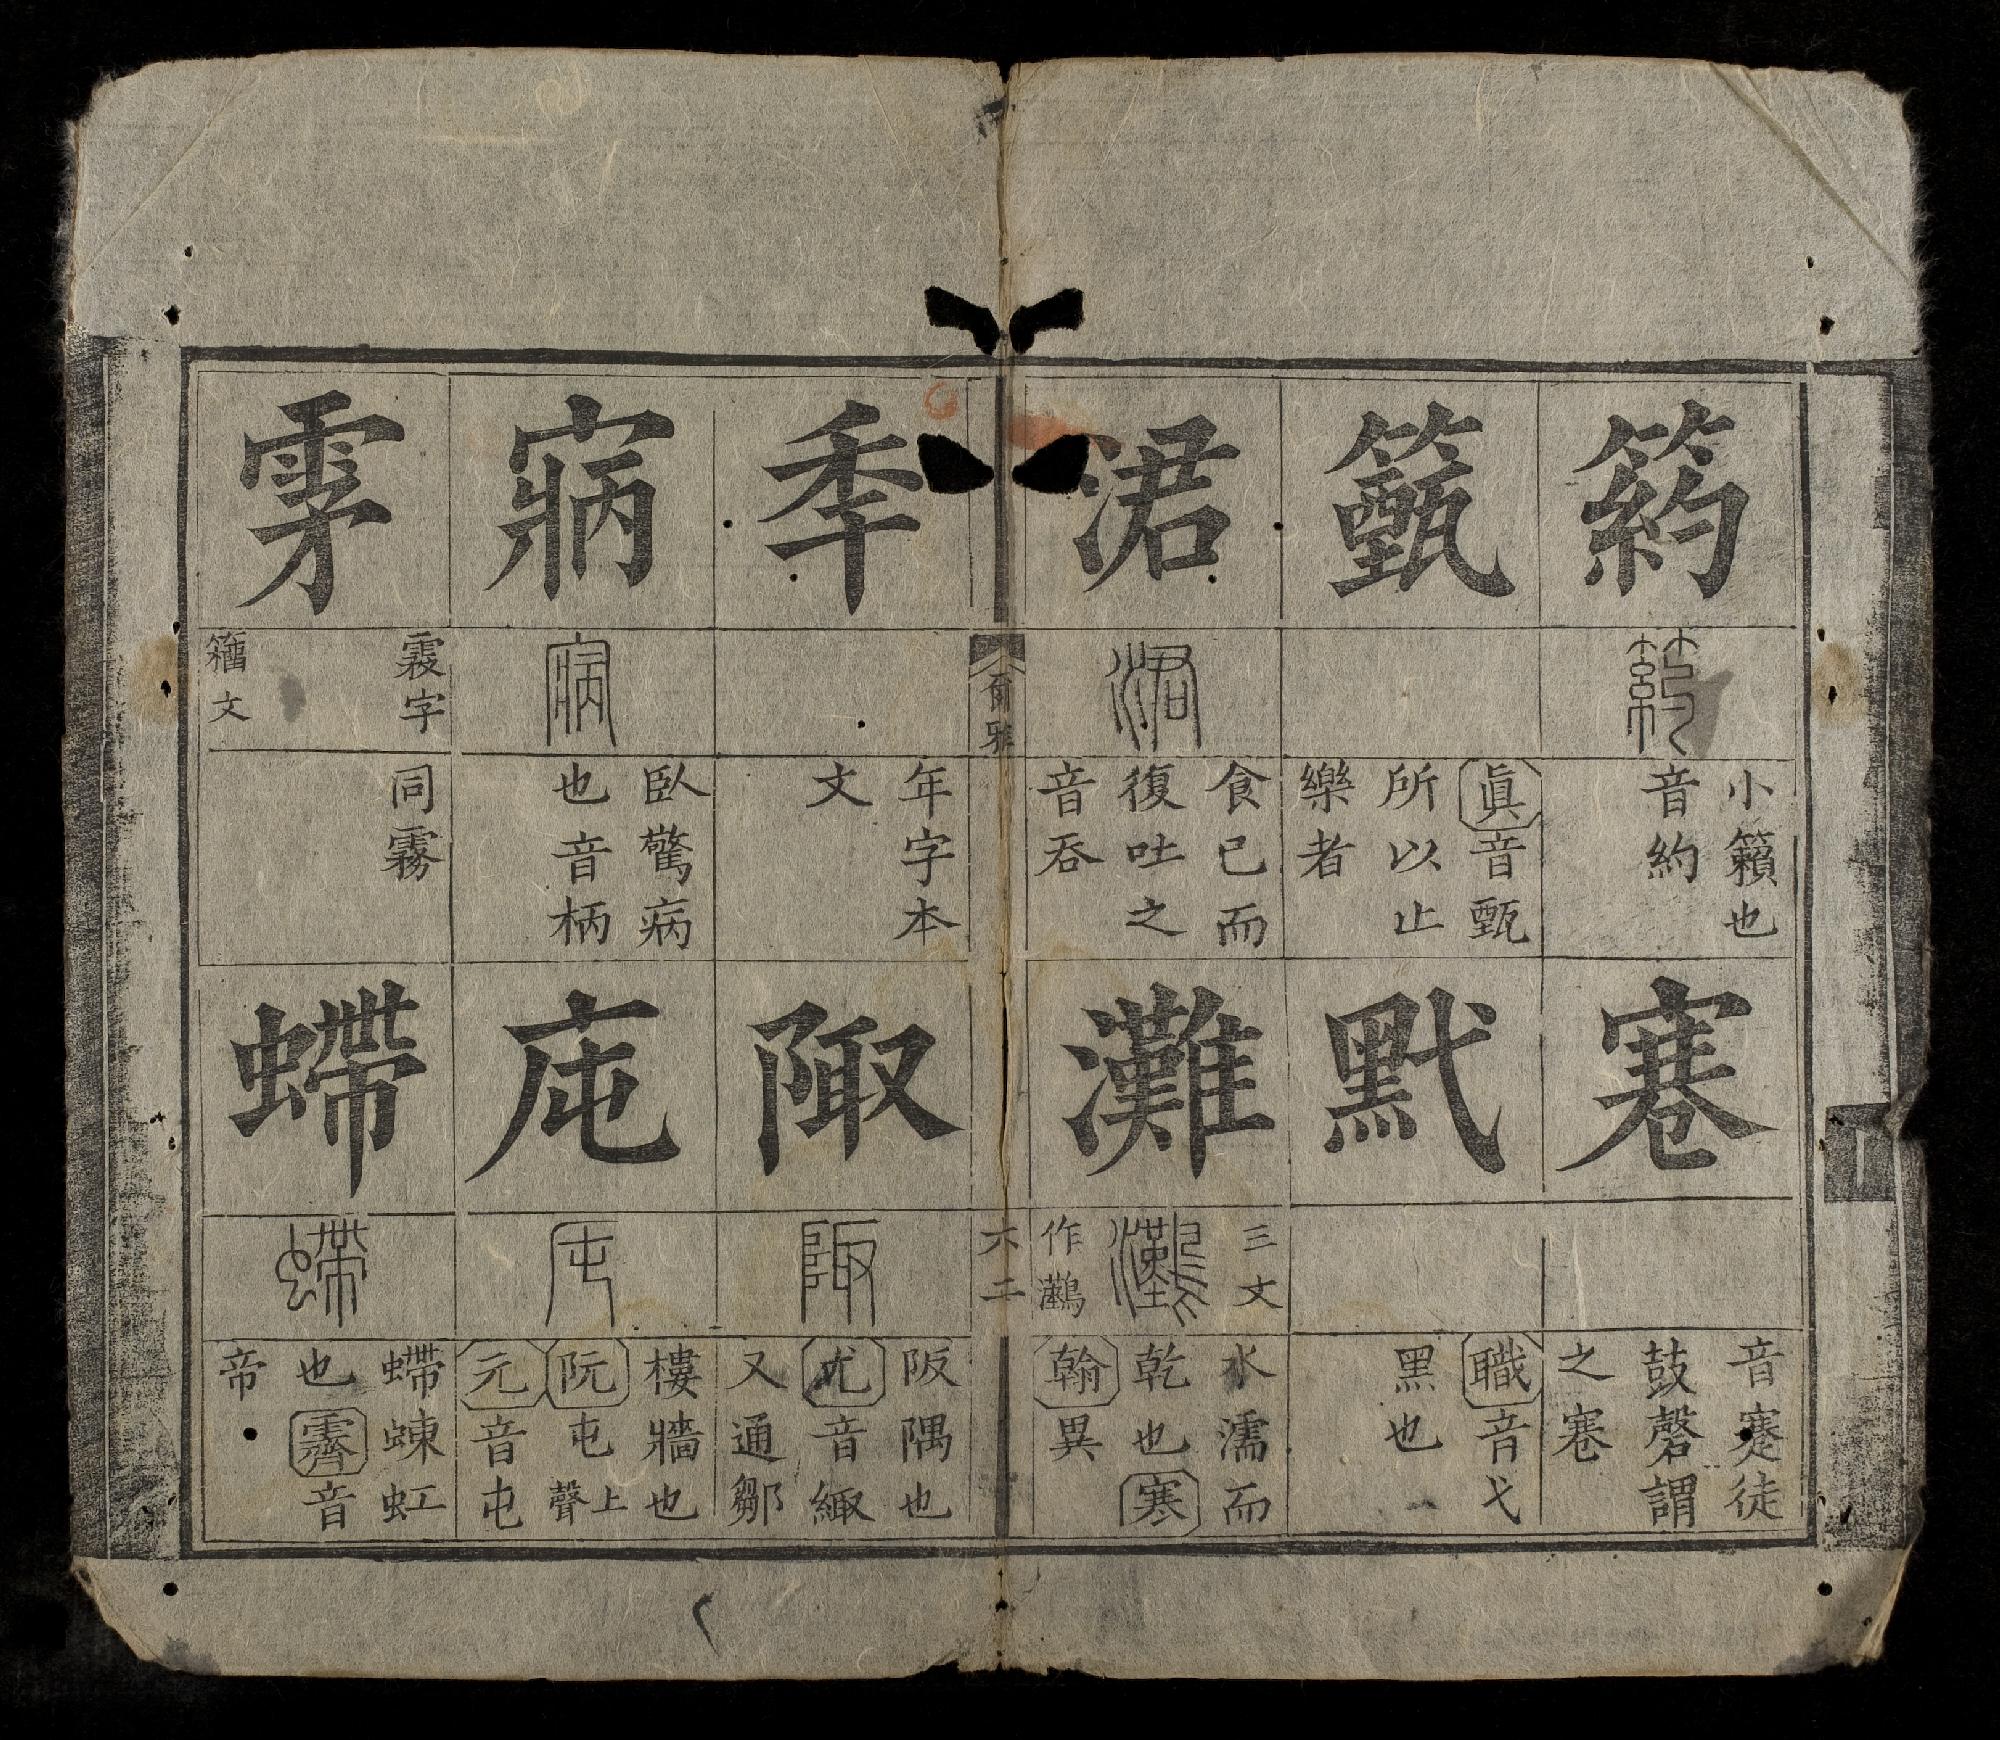 箹
箹
小籟也
音約
寋
音蹇徒
鼓磬謂
之寋
籈
眞音甄
所以止
樂者
黓
職音弋
黑也
涒
涒
食已而
復吐之
音吞
灘
三文
灘
作灘
水濡而
乾也寒
翰異
爾雅
六二
秊
年字本
文
陬
陬
阪隅也
尤音緅
又通鄒
寎
寎
臥驚病
也音柄
庉
庉
樓牆也
阮屯上聲
元音屯
雺
霚字
籀文
同霧
螮
螮
螮蝀虹
也霽音
帝